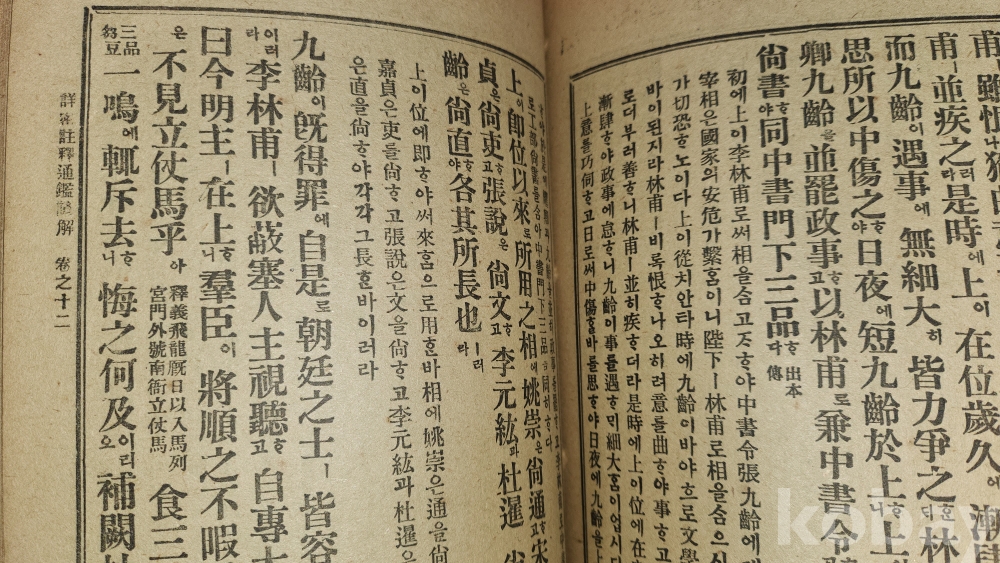 甫ㅣ並疾之라是時에上이在位歲久에漸
而九齡이遇事에無細大히皆力爭之林
思所以中傷之ᄒᆞ야日夜에短九齡於上ᄒᆞ니上
卿九齡을並罷政事ᄒᆞ고以林甫로兼中書令
尙書ᄒᆞ야同中書門下三品ᄒᆞ다出本傳
初에上이李林甫로써相을ᄉᆞᆷ고ᄌᆞᄒᆞ야中書令張九齡에
宰相은國家의安危가繫홈이니陛下ㅣ林甫로相을ᄉᆞᆷ으시
가切恐ᄒᆞ노이다上이從치안타時에九齡이바야흐로文學
바이된지라林甫ㅣ비록恨ᄒᆞ나오히려意를曲ᄒᆞ야事ᄒᆞ고
로더부러善ᄒᆞ니林甫ㅣ並히疾ᄒᆞ더라是時에上이位에在
漸肆ᄒᆞ야政事에怠ᄒᆞ니九齡이事를遇ᄒᆞᄆᆡ細大홈이업시다
上意를巧伺ᄒᆞ고日로써中傷ᄒᆞᆯ바를思ᄒᆞ야日夜에九齡을上
上이卽位以來로所用之相에姚崇은尙通ᄒᆞ고宋
貞은尙吏ᄒᆞ고張說은尙文ᄒᆞ고李元紘과杜暹
齡은尙直ᄒᆞ야各其所長也ㅣ러라
上이位에即ᄒᆞ야써來홈으로用ᄒᆞᆫ바相에姚崇은通을尙
嘉貞은吏를尙ᄒᆞ고張說은文을尙ᄒᆞ고李元紘과杜暹은
은直을尙ᄒᆞ야각각그長ᄒᆞᆫ바이러라
九齡이旣得罪에自是로朝廷之士ㅣ皆容
이러라李林甫ㅣ欲蔽塞人主視聽ᄒᆞ고自專大
曰今明主ㅣ在上ᄒᆞ니羣臣이將順之不暇
은不見立仗馬乎아釋義飛龍廐日以八馬列宮門外號南衙立仗馬食三
三品芻豆一鳴에輒斥去ᄒᆞ니悔之何及이리오補闕
詳密註釋通鑑諺解 卷之十二
kobay